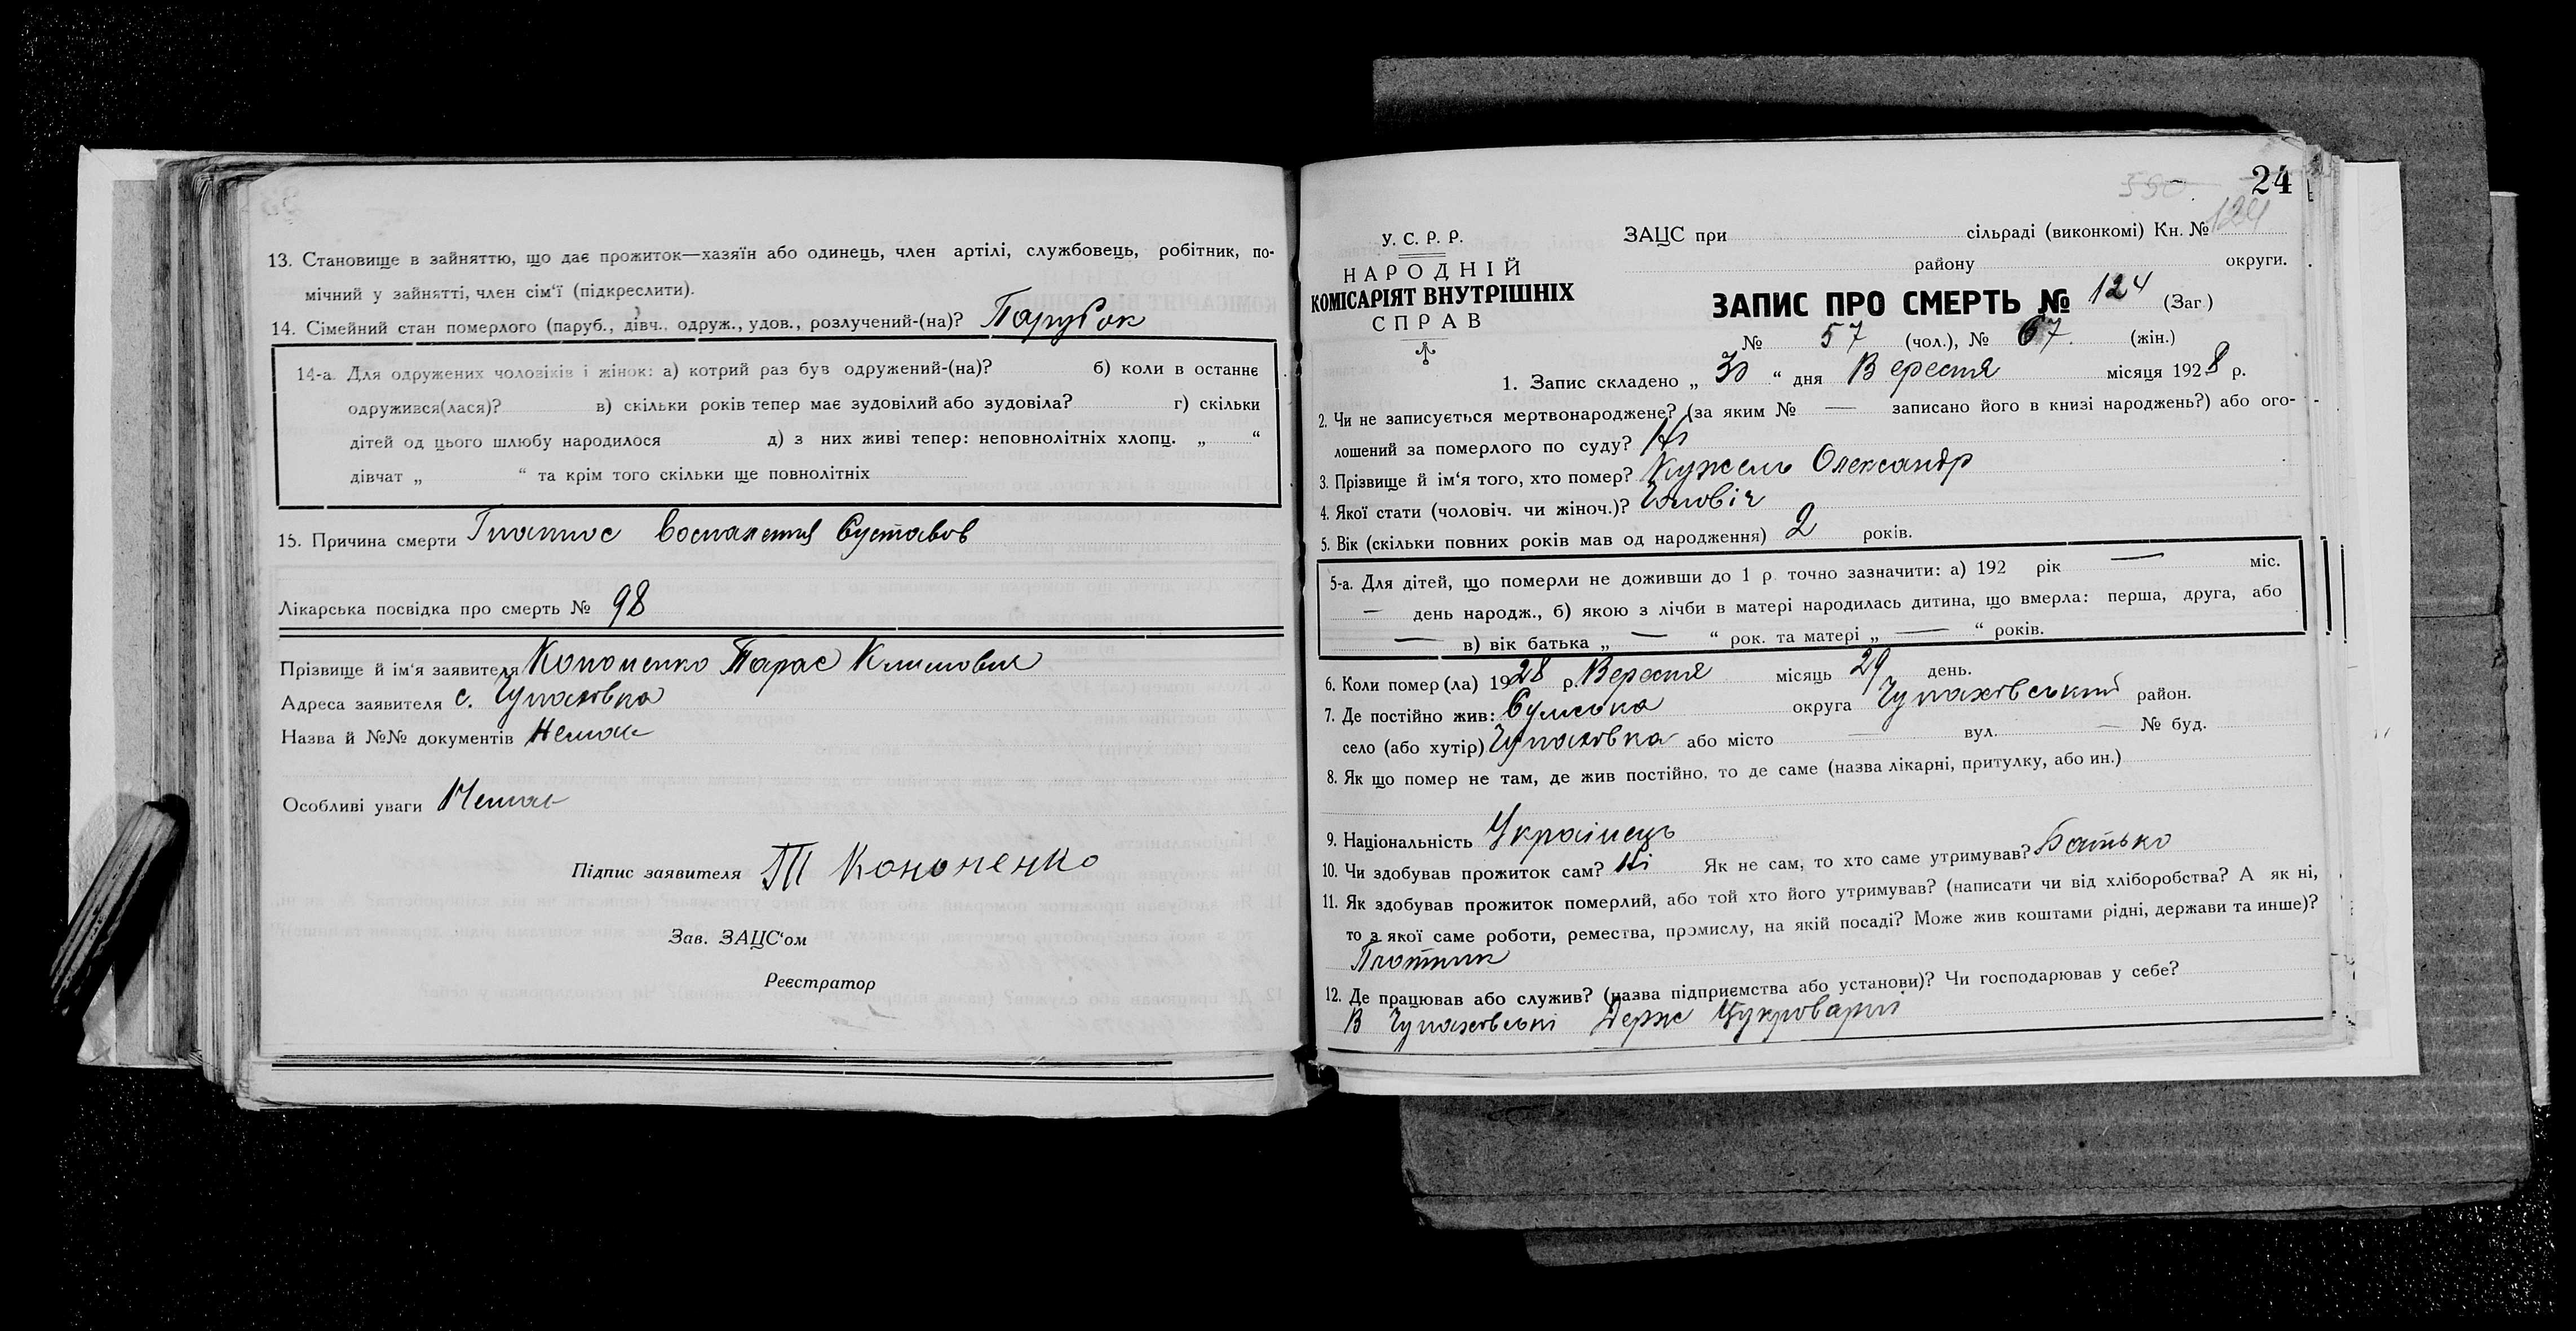 13. Становище в зайняттю, що дає прожиток—хазяїн або одинець, член артілі, службовець, робітник, по-
мічний у зайнятті, член сім'ї (підкреслити).
14. Сімейний стан померлого (паруб., дівч., одруж., удов., розлучений-(на)? Парубок
14-а. Для одружених чоловіків і жінок: а) котрий раз був одружений-(на)? б) коли в останнє
одружився(лася)? в) скільки років тепер має зудовілий або зудовіла? г) скільки
дітей од цього шлюбу народилося д) з них живі тепер: неповнолітніх хлопц. „ “
дівчат „ “ та крім того скільки ще повнолітніх
15. Причина смерти воспаления Суставов
Лікарська посвідка про смерть № 98
Прізвище й ім'я заявителя Кононенко Тарас Климович
Адреса заявителя с. Чупаховка
Назва й №№ документів Немає
Особливі уваги Немає
Підпис заявителя Т Кононенко
Зав. ЗАЦС'ом
Реєстратор
24
124
У. С. Р. Р.
НАРОДНІЙ
КОМІСАРІЯТ ВНУТРІШНІХ
СПРАВ
ЗАЦС при сільраді (виконкомі) Кн. №
району округи.
ЗАПИС ПРО СМЕРТЬ № 124 (Заг.)
№ 57 (чол.), № 67. (жін.)
1. Запис складено „ 30 “ дня Вересня місяця 1928 р.
2. Чи не записується мертвонароджене? (за яким № — записано його в книзі народжень?) або ого-
лошений за померлого по суду? Ні
3. Прізвище й ім'я того, хто помер? Кужель Олександр
4. Якої стати (чоловіч. чи жіноч.)? Чоловіч
5. Вік (скільки повних років мав од народження) 2 років.
5-а. Для дітей, що померли не доживши до 1 р. точно зазначити: а) 192 рік — міс.
— день народж., б) якою з лічби в матері народилась дитина, що вмерла: перша, друга, або
— в) вік батька „ — “ рок. та матері „ — “ років.
6. Коли помер (ла) 1928 р. Вересня місяць 29 день.
7. Де постійно жив: Сумська округа Чупаховський район.
село (або хутір) Чупаховка або місто — вул. — № буд.
8. Як що помер не там, де жив постійно, то де саме (назва лікарні, притулку, або ин.)
9. Національність Українець
10. Чи здобував прожиток сам? Ні Як не сам, то хто саме утримував? Батько
11. Як здобував прожиток померлий, або той хто його утримував? (написати чи від хліборобства? А як ні,
то з якої саме роботи, ремества, промислу, на якій посаді? Може жив коштами рідні, держави та инше)?
Плотник
12. Де працював або служив? (назва підприємства або установи)? Чи господарював у себе?
В Чупаховські Держ Цукроварні